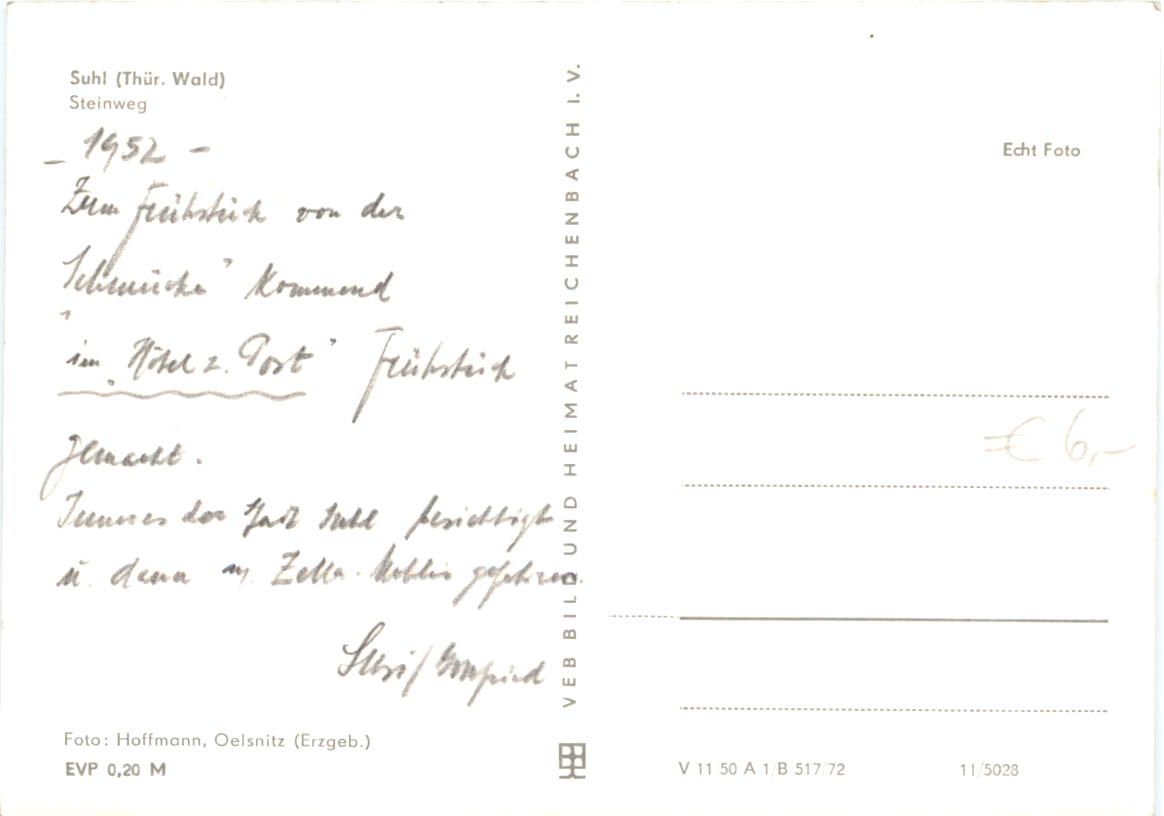 Suhl (Thür. Wald)
Steinweg
– 1952 –
Zum Frühstück von der
„Schmücke" kommend
im „Hotel z. Post" Frühstück
gemacht.
Inneres der Stadt Suhl besichtigt
u. dann n. Zella-Mehlis gefahren.
Foto: Hoffmann, Oelsnitz (Erzgeb.)
EVP 0,20 M
VEB BILD UND HEIMAT REICHENBACH I. V.
Echt Foto
=€ 6,-
V 11 50 A 1/B 517/72
11/5028